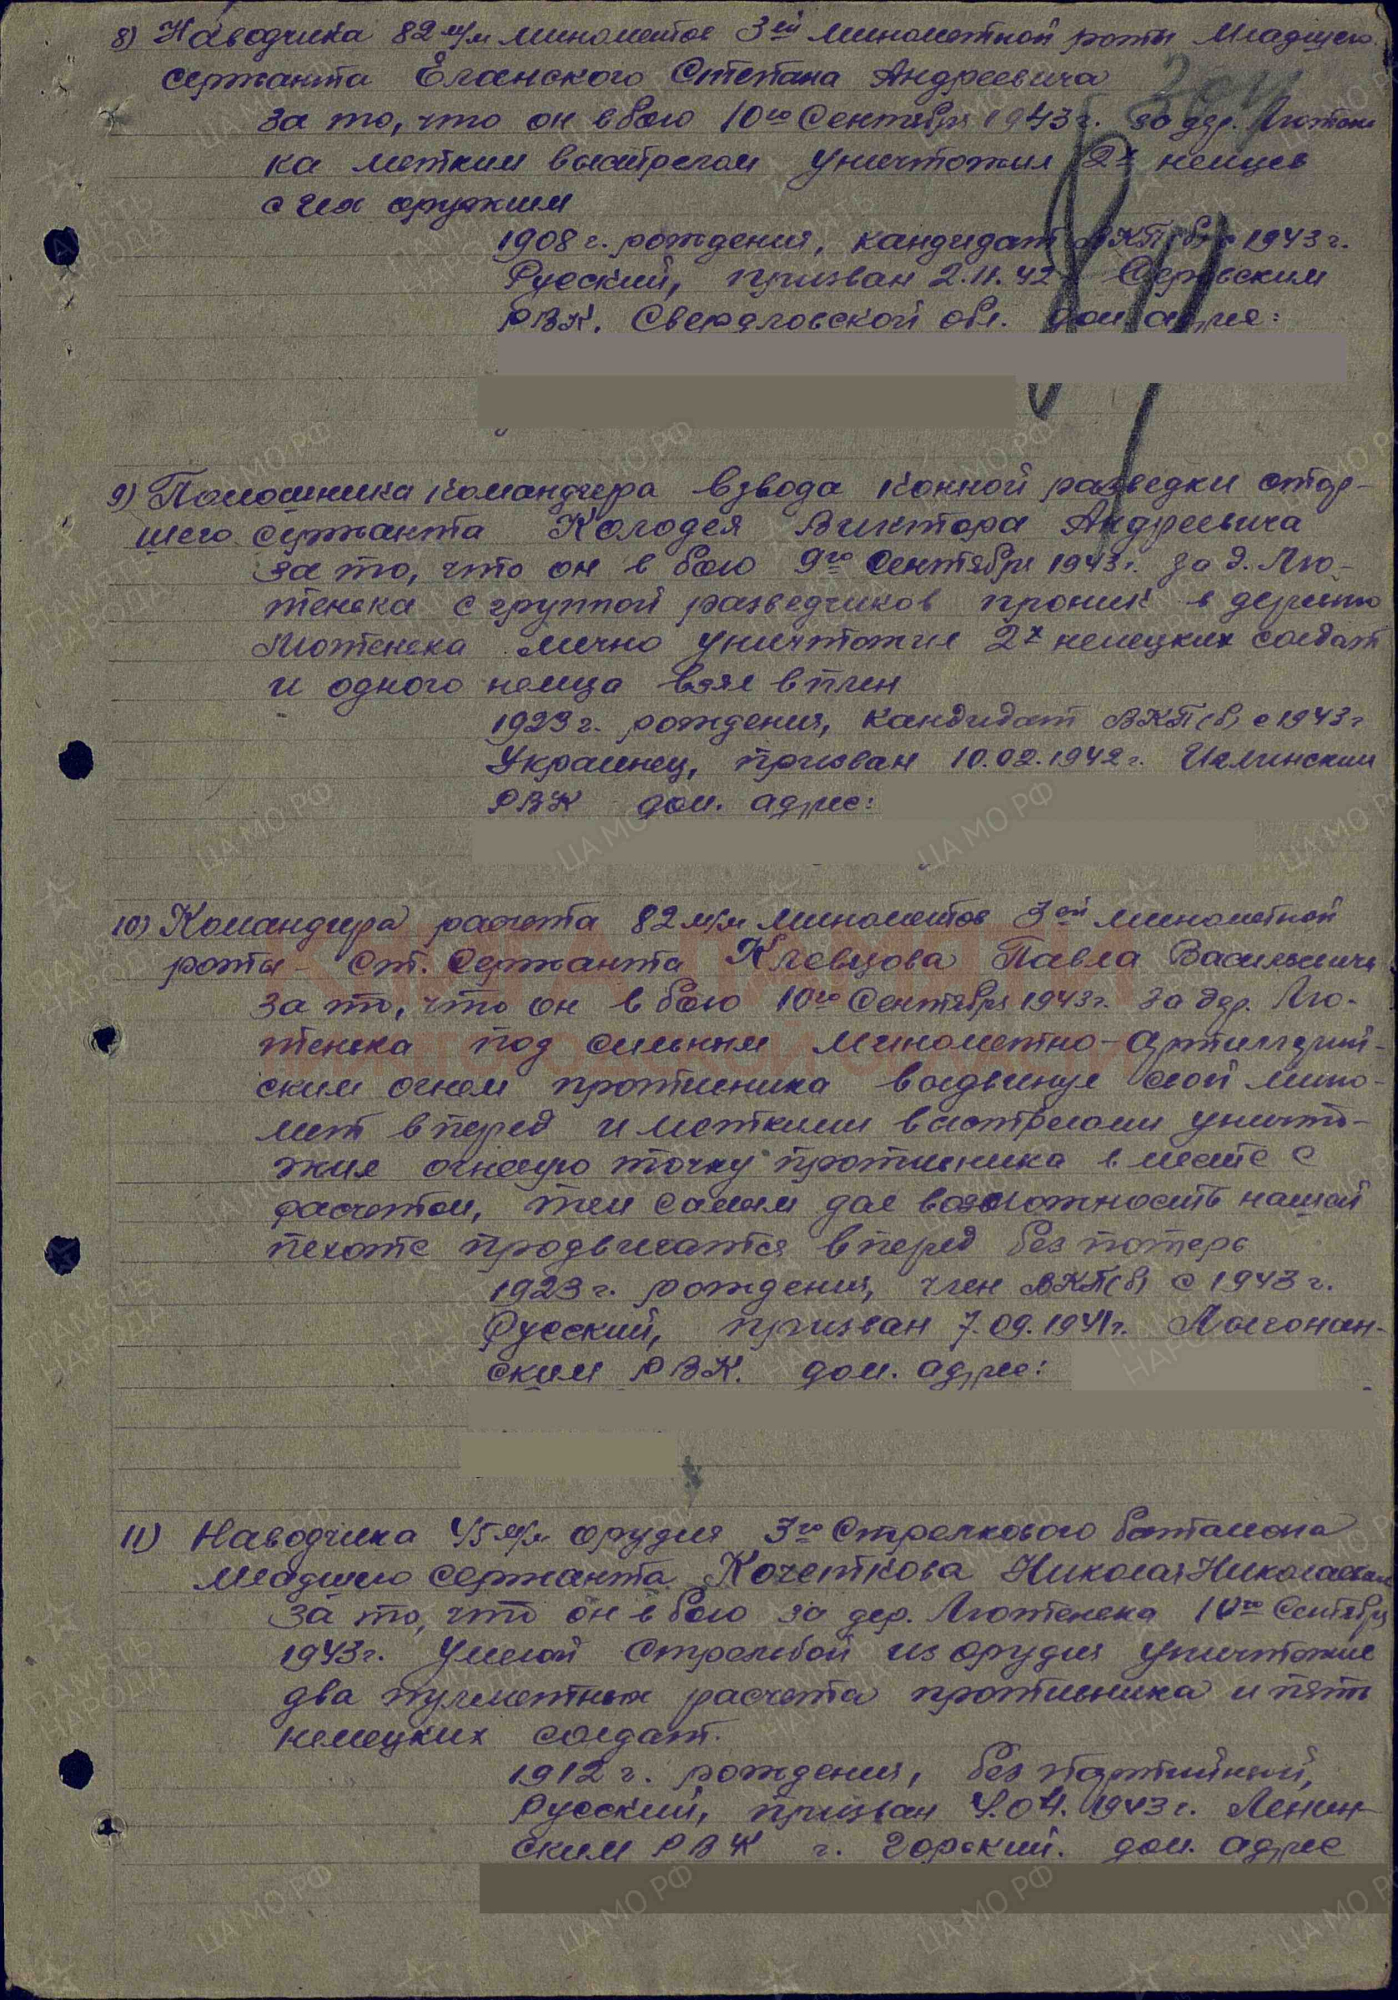 8) Наводчика 82 м/м минометов 3ей минометной роты Младшего
сержанта Еланского Степана Андреевича
за то, что он в бою 10го Сентября 1943 г. за дер. Лютень
ка метким выстрелом уничтожил 2х немцев
с их оружием
1908 г. рождения, кандидат ВКП(б) с 1943 г.
Русский, призван 2.11.42 Серовским
РВК. Свердловской обл. дом. адрес:
9) Помошника командира взвода конной разведки стар-
шего сержанта Колодея Виктора Андреевича
за то, что он в бою 9го Сентября 1943 г. за д. Лю-
тенька с группой разведчиков проник в деревню
Лютенька лично уничтожил 2х немецких солдат
и одного немца взял в плен
1923 г. рождения, кандидат ВКП(б) с 1943 г
Украинец, призван 10.02.1942 г. Иглинским
РВК дом. адрес:
10) Командира расчета 82 м/м минометов 3ей минометной
роты - ст. Сержанта Клевцова Павла Васильевича
за то, что он в бою 10го Сентября 1943 г. за дер. Лю-
тенька под сильным минометно-артиллерий-
ским огнем противника выдвинул свой мино-
мет вперед и меткими выстрелами уничто-
жил огневую точку противника вместе с
расчетом, тем самым дал возможность нашей
пехоте продвигатся вперед без потерь
1923 г. рождения, член ВКП(б) с 1943 г.
Русский, призван 7.09.1941 г.
ским РВК. дом. адрес:
11) Наводчика 45 м/м орудия 3го Стрелкового батальона
младшего сержанта Кочеткова Николая Николаевича
за то, что он в бою за дер. Лютенька 10го Сентября
1943 г. умелой стрельбой из орудия уничтожил
два пулеметных расчета противника и пять
немецких солдат.
1912 г. рождения, без партийный,
Русский, призван 4.04.1943 г. Ленин-
ским РВК г. Горький. дом. адрес